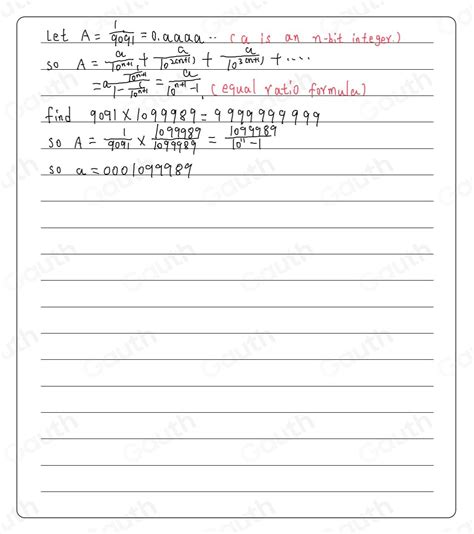 Let A = 1/9091 = 0.aaaa·· (a is an n-bit integer.)
so A = a/10ⁿ⁺¹ + a/10²⁽ⁿ⁺¹⁾ + a/10³⁽ⁿ⁺¹⁾ + ····
= a (1/10ⁿ⁺¹)/(1 - 1/10ⁿ⁺¹) = a/(10ⁿ⁺¹ - 1) (equal ratio formula)
find 9091 × 1099989 = 9999999999
so A = 1/9091 × 1099989/1099989 = 1099989/(10¹¹ - 1)
so a = 0001099989